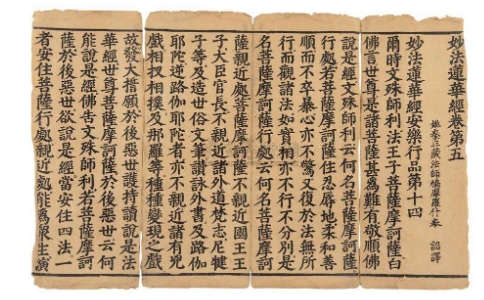 妙法蓮華經卷第五
姚秦三藏法師鳩摩羅什奉 詔譯
妙法蓮華經安樂行品第十四
爾時文殊師利法王子菩薩摩訶薩白
佛言世尊是諸菩薩甚為難有敬順佛
說是經文殊師利云何名菩薩摩訶薩
行處若菩薩摩訶薩住忍辱地柔和善
順而不卒暴心亦不驚又復於法無所
行而觀諸法如實相亦不行不分別是
名菩薩摩訶薩行處云何名菩薩摩訶
薩親近處菩薩摩訶薩不親近國王王
子大臣官長不親近諸外道梵志尼犍
子等及造世俗文筆讚詠外書及路伽
耶陀逆路伽耶陀者亦不親近諸有兇
戲相扠相撲及那羅等種種變現之戲
故發大誓願於後惡世護持讀說是法
華經世尊菩薩摩訶薩於後惡世云何
能說是經佛告文殊師利若菩薩摩訶
薩於後惡世欲說是經當安住四法一
者安住菩薩行處親近處能為眾生演